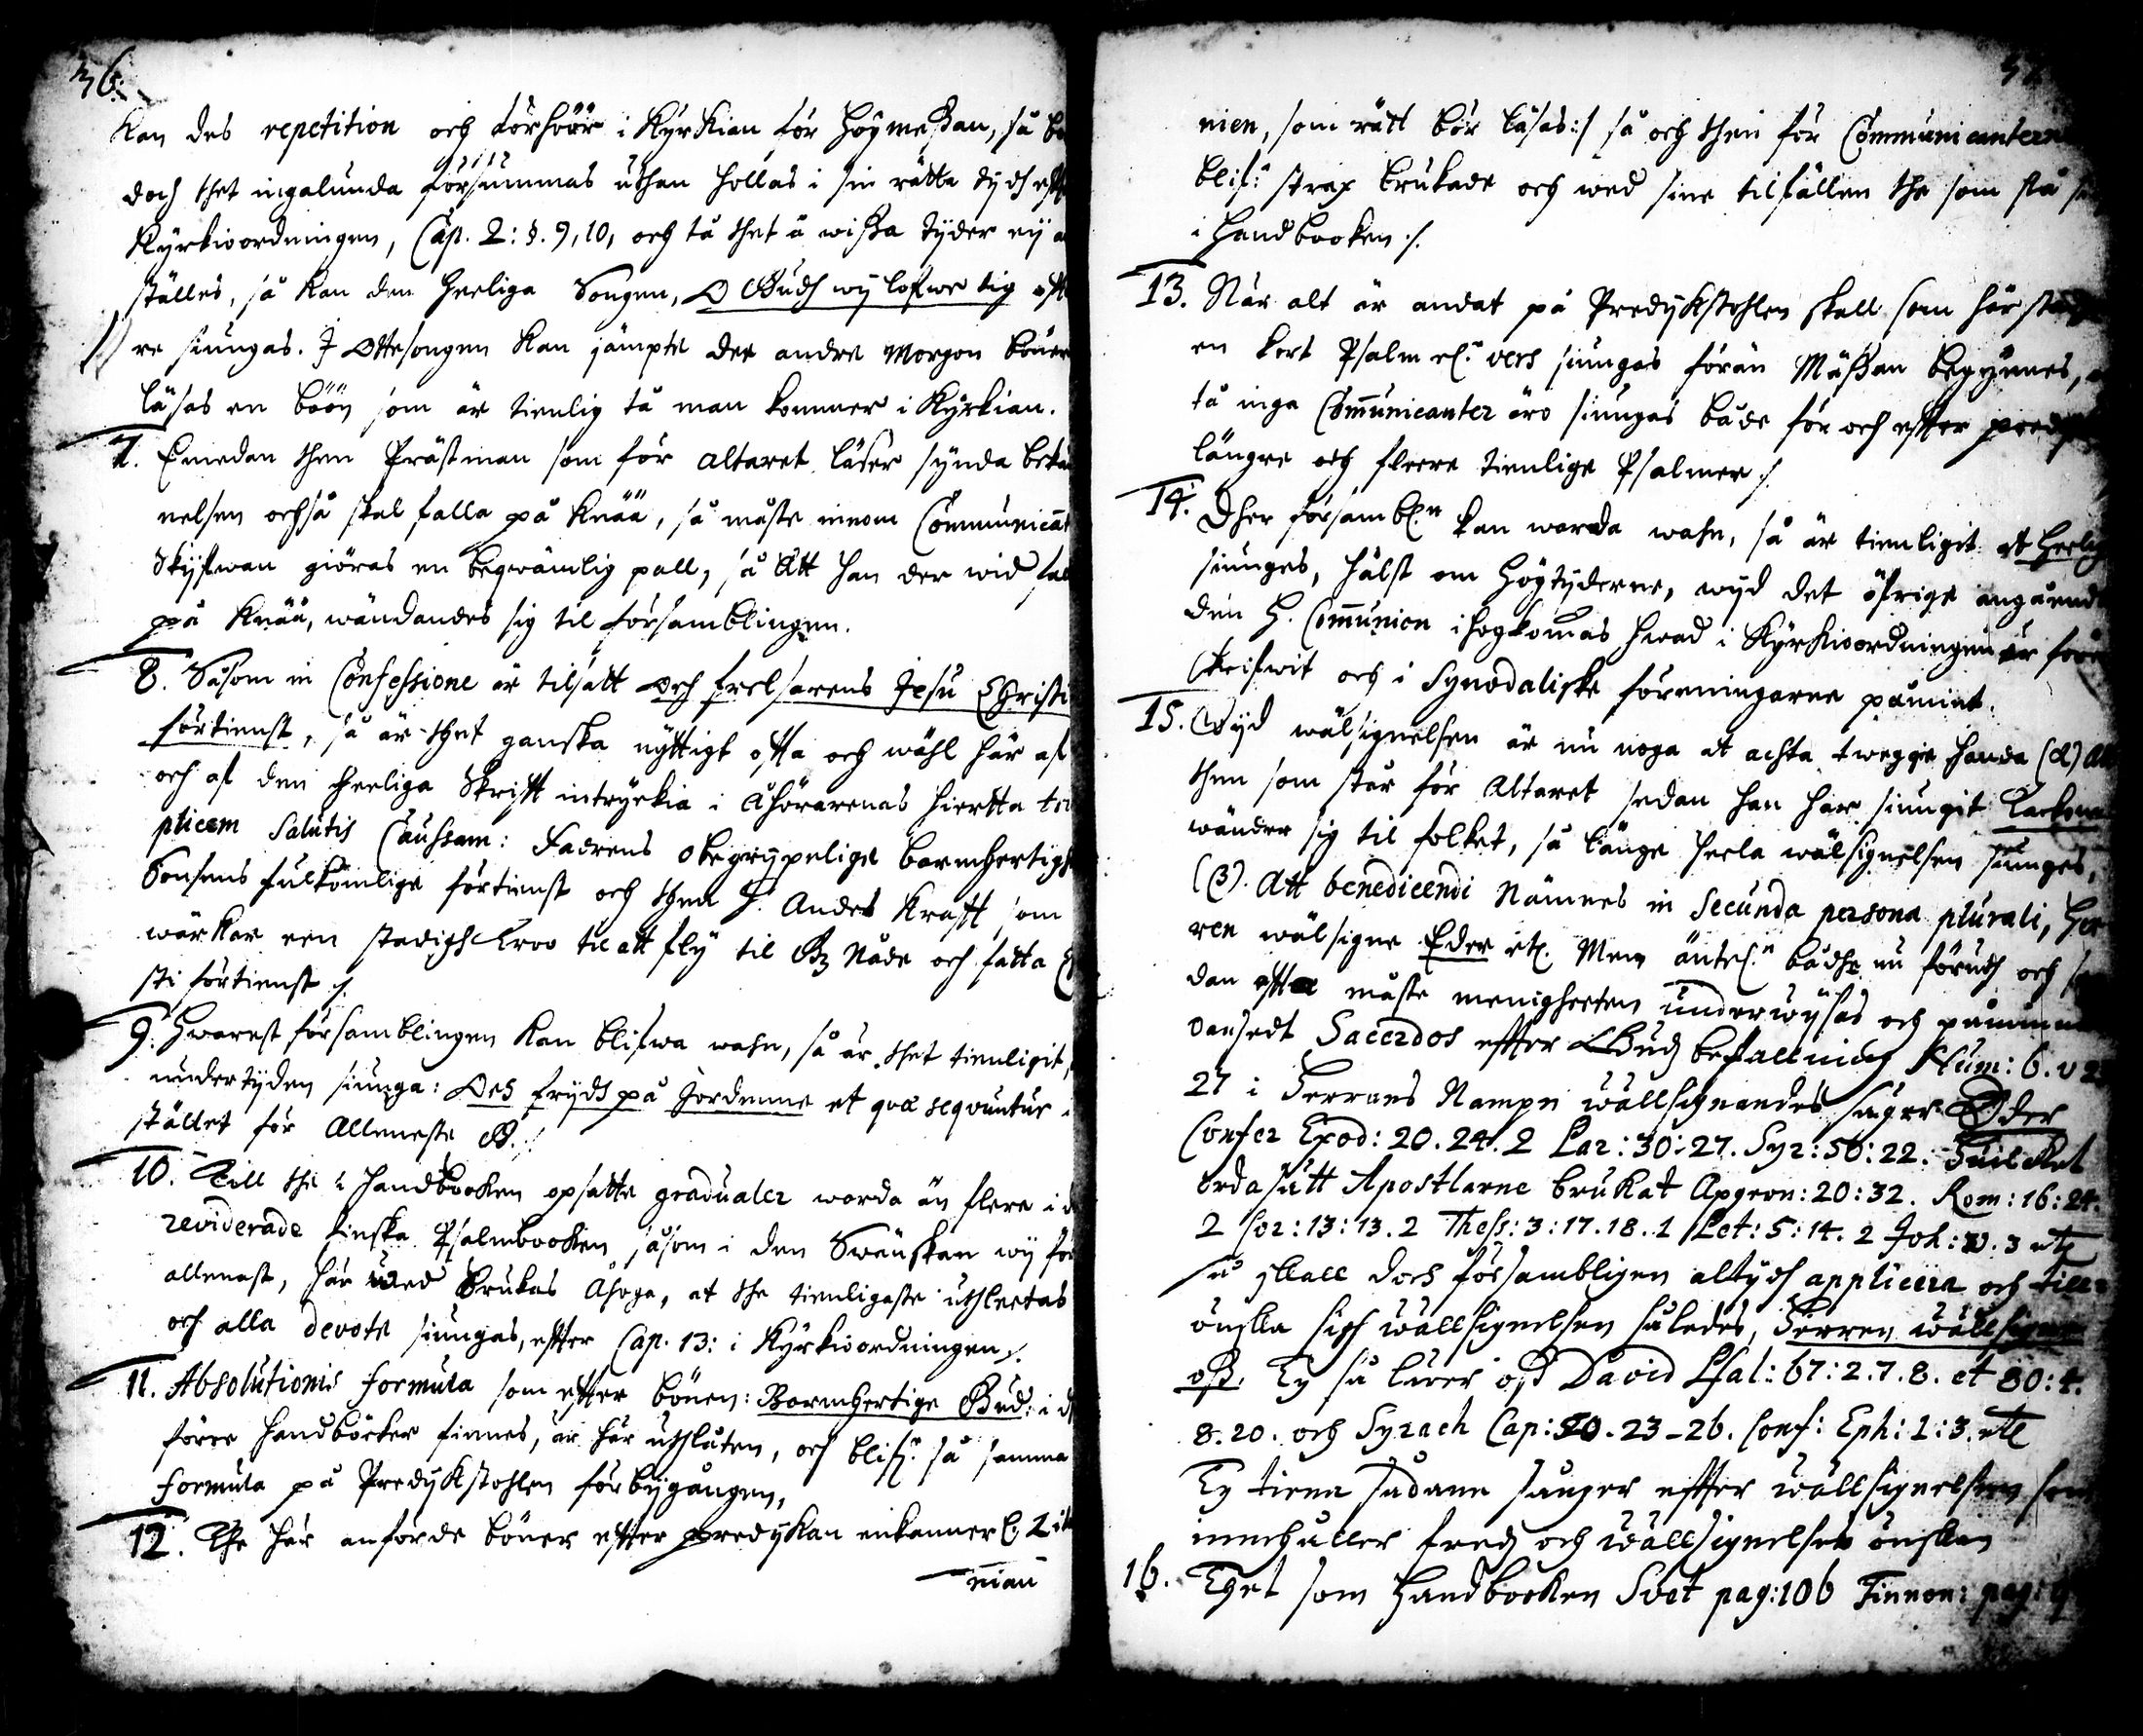 36.
kan des repetition och förhöör i Kyrkian för Höymeßan, så bö
doch thet ingalunda försummas uthan hollas i sin rätta tydh eff
Kyrkioordningen, Cap. 2: §. 9, 10, och tå thet å wißa tyder ey a
ställes, så kan den heeliga Songen, O Gudh wij lofwe tig offt
re siungas. J Ottesongen kan jämpte dee andre Morgon böner
läsas en böön som är tienlig tå man kommer i Kyrkian.
7. Emedan then Prästman som för altaret läser synda bekä
nelsen ochså skal falla på knää, så måste innom Communicant
Skijfwan giöras en beqwämlig pall, så att han der wid fal
på knää, wändandes sig til församblingen.
8. Såsom in Confessione är tilsatt och frelsarens Jesu Christi
förtienst, så är thet ganska nyttigt offta och wähl här af
och af den heeliga Skrifft intryckia i åhörarenas hierta tri
plicem Salutis Caussam: Fadrens obegrypelige barmhertigh
Sonsens fulkomlige förtienst och then H. Andes krafft, som
wärkar een stadigh Troo til att fly til Gz Nåde och fatta C
sti förtienst /.
9. Hwarest församblingen kan blifwa wahn, så är thet tienligit,
undertyden siunga: Och frydh på Jordenne et qvæ seqvuntur i
stället för Alleneste G. /.
10. Till the i Handbooken opsatte gradualer worda än flere i d
reviderade finska Psalmbooken såsom i den Swänskan wij för
allenast, här wed brukas åhoga, at the tienligaste uthleetas
och alla devote siungas, effter Cap. 13: i Kyrkioordningen /.
11. Absolutionis formula som effter bönen: Barmhertige Gud: i d
förre Handböcker finnes, är här uthsluten, och blifr så samma
formula på Predykstohlen förbygången,
12. The här anförde böner effter predykan enkanner L. Lita
nian
nien, som rätt bör läsas:/ så och then för Communicantern
blifr strax brukade och wed sine tilfällen the som stå
i Handbooken /.
13. När alt är andat på Predykstohlen skall som här städ
en kort Psalm el. vers siungas förän Mäßan begynnes,
tå inga Communicanter äro siungas både för och effter pred
längre och fleere tienlige Psalmer /.
14. Dher församblen kan warda wahn, så är tienligit at Heelig
siunges, hälst om Högtyderne, wyd det öfrige angående
den H. Communion ihogkomas hwad i Kyrkioordningen är före
skrifwit och i Synodaliske föreningarne påmint.
15. Wyd wälsignelsen är nu noga at achta twegge handa (α) Att
then som står för altaret sedan han har siungit Tackom
wänder sig til folket, så länge heela wälsignelsen siunges,
(β). Att benedicendi Nämnes in Secunda persona plurali, Her
ren wälsigne Eder etc. Men äntel. bådhe nu förudh och se
dan offta måste menigheeten underwysas och påminnas
Sacerdos effter Gudz befallning Num: 6. v 2
27 i Herrans Nampn wällsignandes säger Eder
Confer Exod: 20. 24. 2 Par: 30: 27. Syr: 50: 22. Huilcket
ordasätt Apostlarne brukat Apgern: 20: 32. Rom: 16: 24.
2 Cor: 13: 13. 2 Thess: 3: 17. 18. 1 Pet: 5: 14. 2 Joh: v. 3 etc
så skall doch församblingen altydh applicera och till=
önska sigh wällsignelsen således, Herren wällsigne
oß. Ty så lärer oß David Psal: 67: 2. 7. 8. et 80: 4.
8. 20. och Syrach Cap: 50. 23-26. Conf: Eph: 1: 3. etc
Ty tiena sådane sånger effter wällsignelsen som
innehåller fred och wällsignelses önskan
16. Thet som Handbooken Svet pag: 106 Finnon: pag: